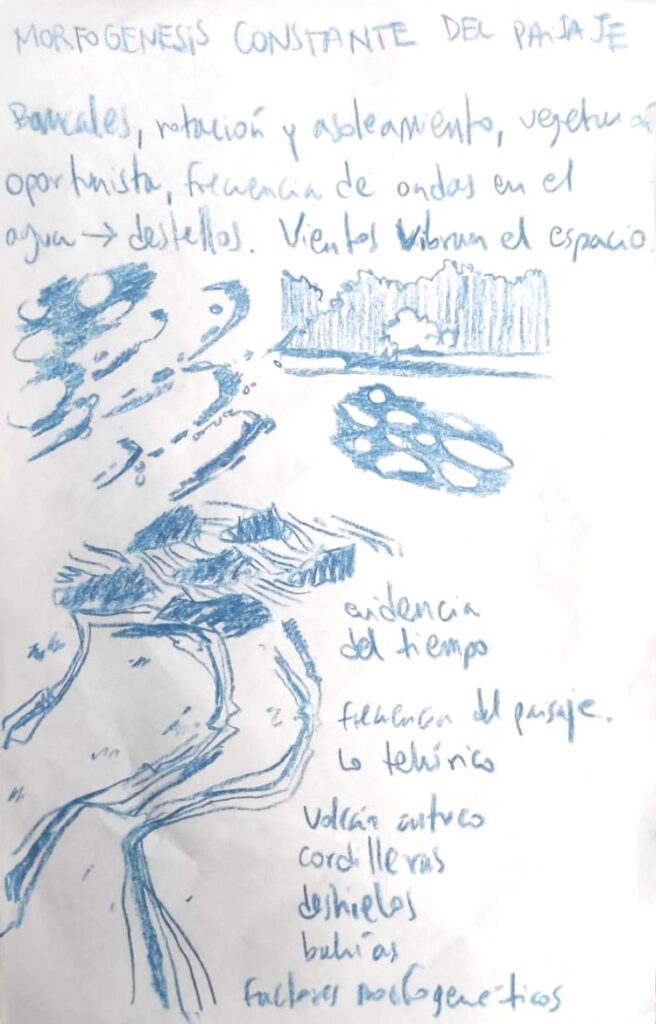 MORFOGENESIS CONSTANTE DEL PAISAJE
Bancales, rotación y asoleamiento, vegetación
oportunista, frecuencia de ondas en el
agua → destellos. Vientos vibran el espacio.
evidencia
del tiempo
frecuencia del paisaje.
Lo telúrico
volcán antuco
cordilleras
deshielos
bahías
factores morfogenéticos